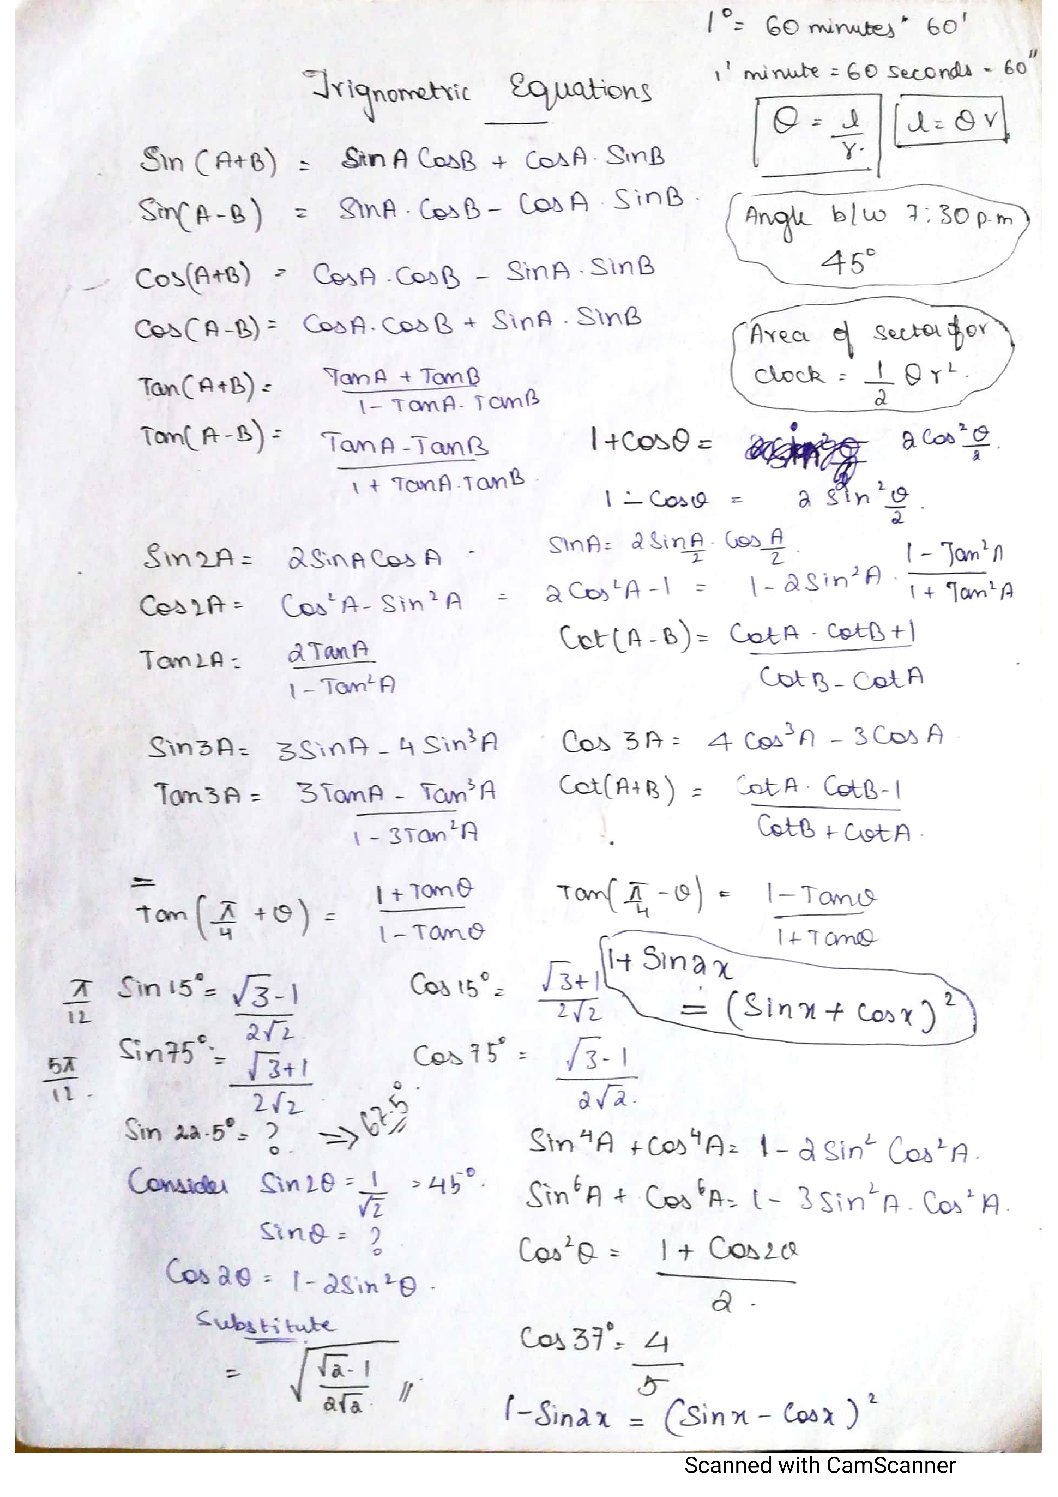 1° = 60 minutes • 60'
1' minute = 60 seconds - 60"
Trignometric Equations
θ = l/r.
l = θr
Sin (A+B) = Sin A CosB + CosA. SinB
Sin(A-B) = SinA. CosB - CosA. SinB.
Angle b/w 7:30 p.m
45°
Cos(A+B) = CosA. CosB - SinA. SinB
Cos(A-B) = CosA. CosB + SinA. SinB
Area of sector for
clock = 1/2 θr²
Tan(A+B) = TanA + TanB / 1 - TanA. TanB
Tan(A-B) = TanA - TanB / 1 + TanA. TanB
1+Cosθ = 2Cos²θ/2.
1 - Cosθ = 2 Sin²θ/2.
Sin2A = 2SinA Cos A
SinA = 2SinA/2. Cos A/2.
Cos2A = Cos²A - Sin²A = 2Cos²A-1 = 1-2Sin²A. 1 - Tan²A / 1 + Tan²A
Tan2A = 2TanA / 1 - Tan²A
Cot(A-B) = CotA. CotB+1 / CotB - CotA
Sin3A = 3SinA - 4Sin³A
Cos 3A = 4 Cos³A - 3CosA
Tan3A = 3TanA - Tan³A / 1 - 3Tan²A
Cot(A+B) = CotA. CotB-1 / CotB + CotA.
=
Tan(π/4 + θ) = 1+Tanθ / 1-Tanθ
Tan(π/4 - θ) = 1-Tanθ / 1+Tanθ
1+ Sin2x
= (Sinx + Cosx)²
π/12 Sin15° = √3-1 / 2√2
Cos15° = √3+1 / 2√2
5π/12. Sin75° = √3+1 / 2√2
Cos75° = √3-1 / 2√2.
Sin 22.5° = ? ⇒ 67.5°
Consider Sin2θ = 1/√2 = 45°.
Sinθ = ?
Cos2θ = 1-2Sin²θ.
Substitute
= √(√2-1 / 2√2) //
Sin⁴A + Cos⁴A = 1-2Sin² Cos²A.
Sin⁶A + Cos⁶A = 1-3Sin²A. Cos²A.
Cos²θ = 1 + Cos2θ / 2.
Cos37° = 4/5
1-Sin2x = (Sinx - Cosx)²
Scanned with CamScanner